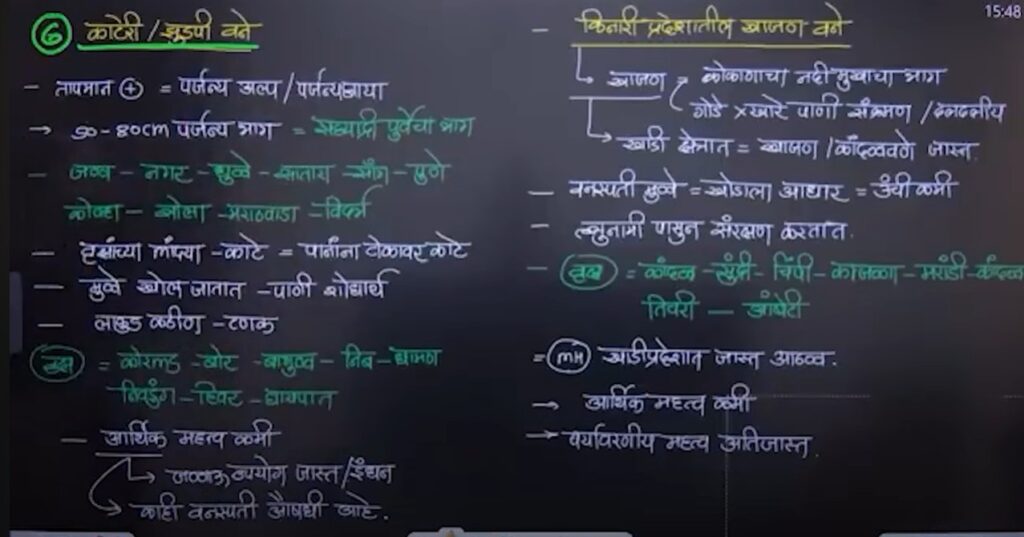 15:48
⑥ काटेरी / झुडपी वने
- तापमान ⊕ = पर्जन्य अल्प / पर्जन्यछाया
→ ५०-80cm पर्जन्य भाग = सह्याद्री पुर्वेचा भाग
- जळव - नगर - धुळे - सातारा - सांग - पुणे
कोल्हा - सोला - मराठवाडा - विदर्भ
- वृक्षांच्या फांद्या - काटे = पानांना टोकावर काटे
- मुळे खोल जातात - पाणी शोधार्थ
- लाकुड कठीण - टणक
वृक्ष = कोरफड - बोर - बाभुळ - निंब - धामण
निवडुंग - हिवर - घायपात
- आर्थिक महत्व कमी
↳ जळाऊ उपयोग जास्त / इंधन
→ काही वनस्पती औषधी आहे.
- किनारी प्रदेशातील खाजण वने
↳ खाजण = कोकणाचा नदी मुखाचा भाग
गोडे × खारे पाणी संक्रमण / दलदलीय
↳ खाडी क्षेत्रात = खाजण / कांदळवने जास्त.
- वनस्पती मुळे = खोडाला आधार = उंची कमी
- त्सुनामी पासुन संरक्षण करतात.
- वृक्ष = कांदळ - सुंद्री - चिपी - काजळा - मारांडी - कांदळ
तिवरी - आंबेटी
= MH खाडीप्रदेशात जास्त आढळ.
→ आर्थिक महत्व कमी
→ पर्यावरणीय महत्व अतिजास्त.